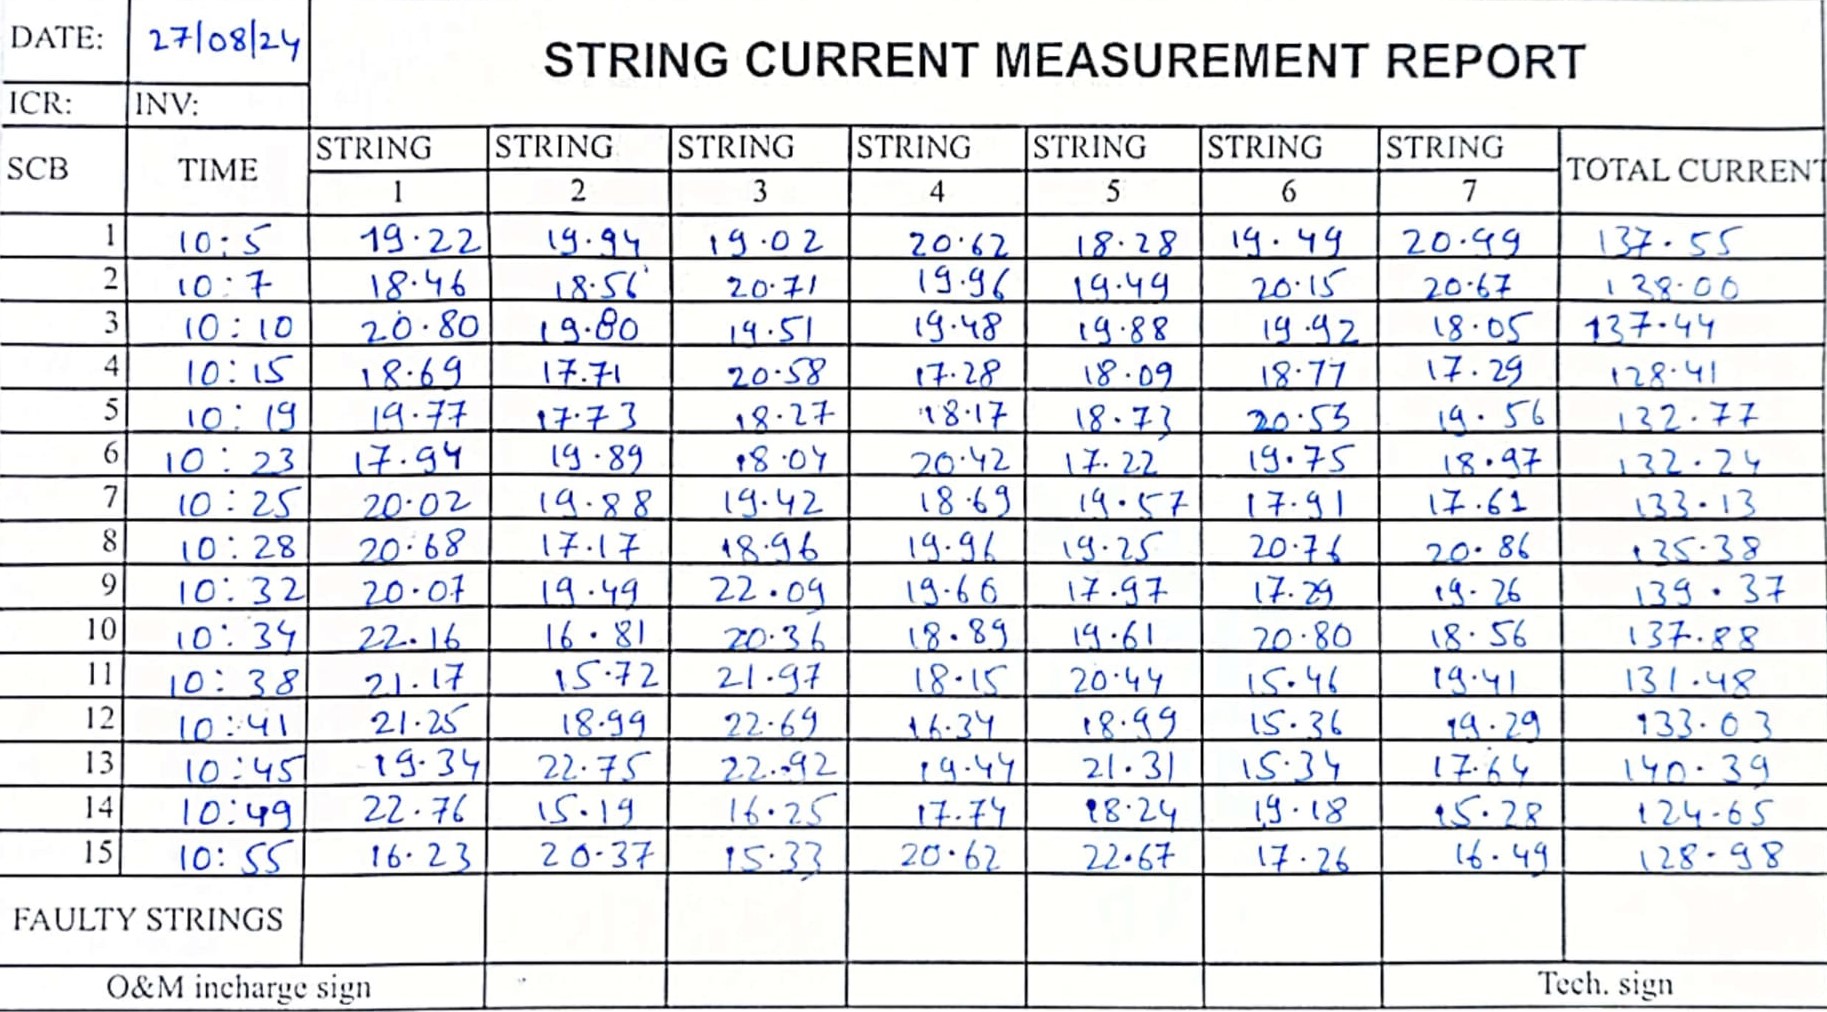 DATE: 27/08/24 STRING CURRENT MEASUREMENT REPORT
ICR: INV:
SCB TIME STRING 1 STRING 2 STRING 3 STRING 4 STRING 5 STRING 6 STRING 7 TOTAL CURRENT
1 10:5 19.22 19.94 19.02 20.62 18.28 19.49 20.99 137.55
2 10:7 18.46 18.56 20.71 19.96 19.49 20.15 20.67 138.00
3 10:10 20.80 19.80 19.51 19.48 19.88 19.92 18.05 137.44
4 10:15 18.69 17.71 20.58 17.28 18.09 18.77 17.29 128.41
5 10:19 19.77 17.73 18.27 18.17 18.73 20.53 19.56 132.77
6 10:23 17.94 19.89 18.04 20.42 17.22 19.75 18.97 132.24
7 10:25 20.02 19.88 19.42 18.69 19.57 17.91 17.61 133.13
8 10:28 20.68 17.17 18.96 19.96 19.25 20.76 20.86 135.38
9 10:32 20.07 19.49 22.09 19.60 17.97 17.29 19.26 139.37
10 10:34 22.16 16.81 20.36 18.89 19.61 20.80 18.56 137.88
11 10:38 21.17 15.72 21.97 18.15 20.44 15.46 19.41 131.48
12 10:41 21.25 18.99 22.69 16.34 18.99 15.36 19.29 133.03
13 10:45 19.34 22.75 22.92 19.44 21.31 15.34 17.64 140.39
14 10:49 22.76 15.19 16.25 17.74 18.24 19.18 15.28 124.65
15 10:55 16.23 20.37 15.33 20.62 22.67 17.26 16.49 128.98
FAULTY STRINGS
O&M incharge sign Tech. sign